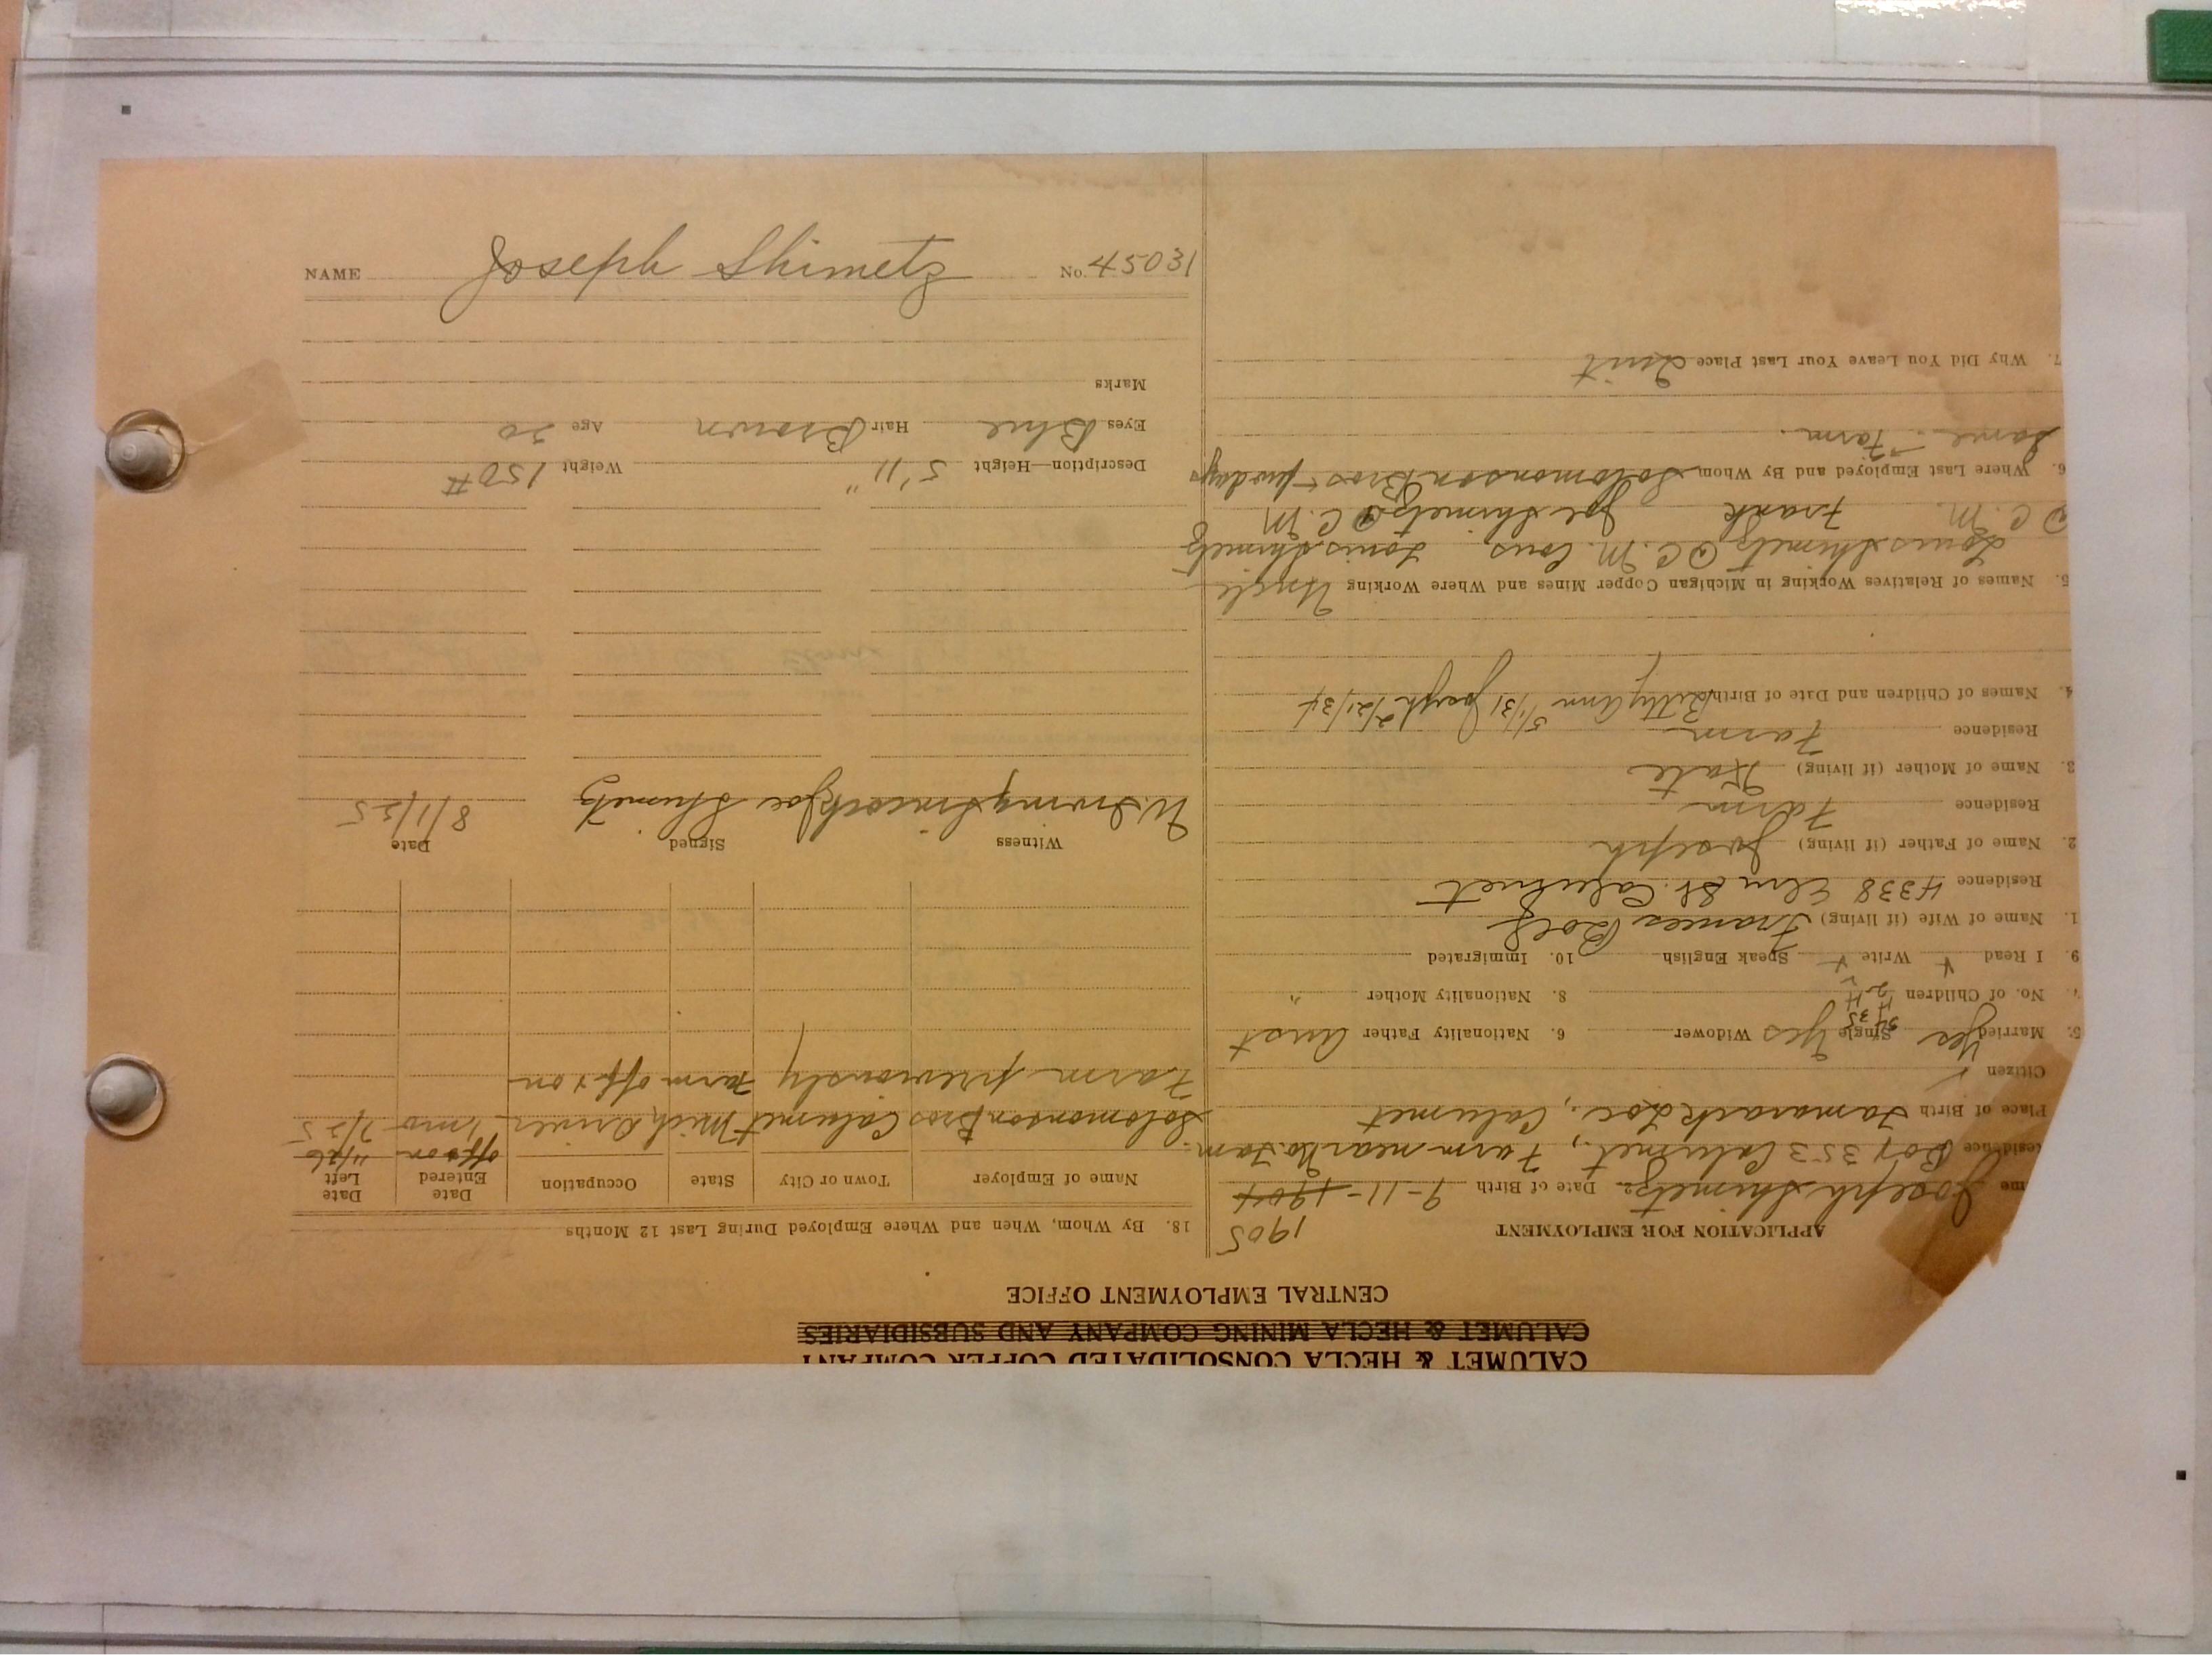 NAME Joseph Shimetz No. 45031
CALUMET & HECLA CONSOLIDATED COPPER COMPANY
CALUMET & HECLA MINING COMPANY AND SUBSIDIARIES
CENTRAL EMPLOYMENT OFFICE
APPLICATION FOR EMPLOYMENT 1905
me Joseph Shimetz Date of Birth 9-11-1904
Residence Box 353 Calumet, Farm near No. Tam.
Place of Birth Tamarack Loc., Calumet
Citizen
5. Married Yes Single Yes Widower 6. Nationality Father Aust
7. No. of Children 2 8. Nationality Mother "
9. I Read Write Speak English 10. Immigrated
1. Name of Wife (if living) Frances
Residence 4338 Elm St. Calumet
2. Name of Father (if living) Joseph
Residence Farm
3. Name of Mother (if living) Kate
Residence Farm
4. Names of Children and Date of Birth Betty Ann 5/1/31 Joseph 2/21/34
5. Names of Relatives Working in Michigan Copper Mines and Where Working Uncle
Louis Shimetz C.M. Cous. Louis Shimetz
C.M. Frank Joe Shimetz C.M
6. Where Last Employed and By Whom Solomonson Bros - few days
Same - Farm.
7. Why Did You Leave Your Last Place Quit
18. By Whom, When and Where Employed During Last 12 Months
Name of Employer Town or City State Occupation Date Entered Date Left
off + on 11/26
Solomonson Bros Calumet Mich Driver 1 mo 7/25
Farm previously Farm off + on
Witness Signed Date
W. Irving Joe Shimetz 8/1/25
Description—Height 5'11" Weight 150#
Eyes Blue Hair Brown Age 20
Marks